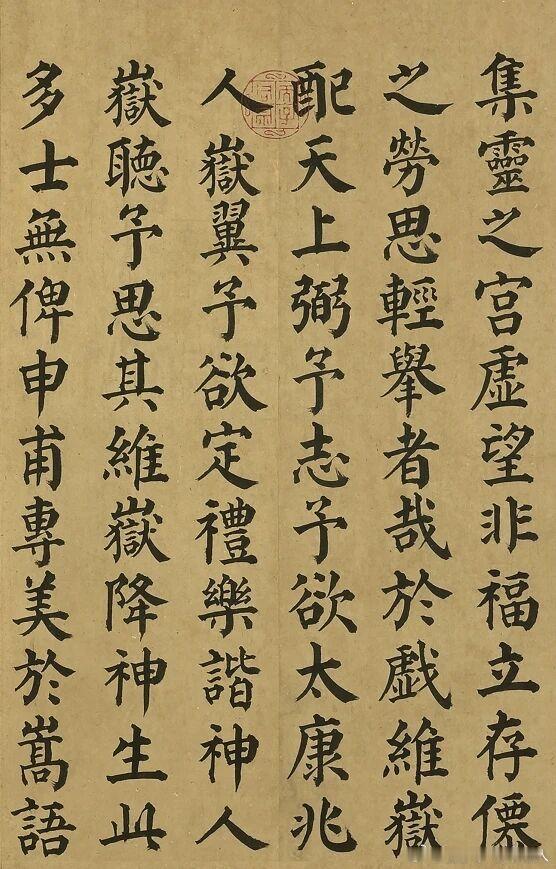 集靈之宮虛望非福立存僊
之勞思輕舉者哉於戯維嶽
配天上弼予志予欲太康兆
人嶽翼予欲定禮樂諧神人
嶽聽予思其維嶽降神生此
多士無俾申甫專美於嵩語